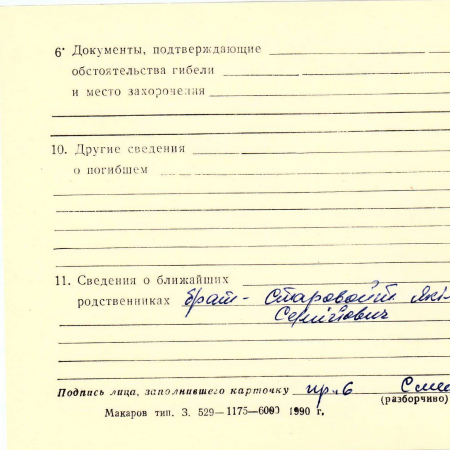 6· Документы, подтверждающие
обстоятельства гибели
и место захоронения
10. Другие сведения
о погибшем
11. Сведения о ближайших
родственниках брат - Старовойт Які-
Сергійович
Подпись лица, заполнившего карточку пр. б
(разборчиво)
Макаров тип. З. 529—1175—6000 1990 г,